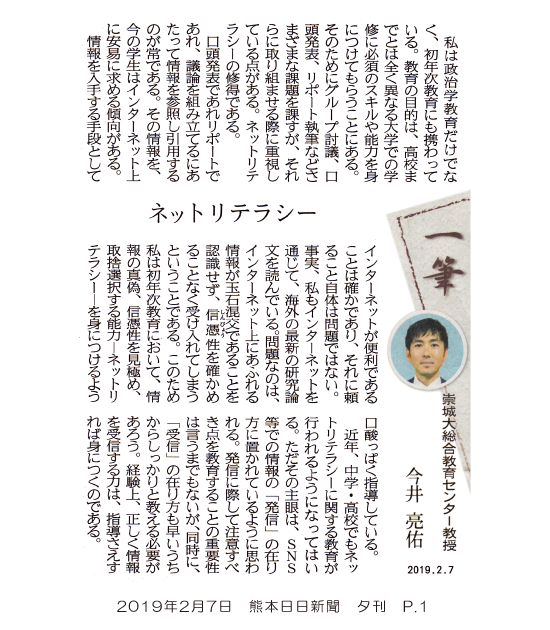 一筆
ネットリテラシー
崇城大総合教育センター教授
今井 亮佑
2019.2.7
私は政治学教育だけでな
く、初年次教育にも携わって
いる。教育の目的は、高校ま
でとは全く異なる大学での学
修に必須のスキルや能力を身
につけてもらうことにある。
そのためにグループ討議、口
頭発表、リポート執筆などさ
まざまな課題を課すが、それ
らに取り組ませる際に重視し
ている点がある。ネットリテ
ラシーの修得である。
口頭発表であれリポートで
あれ、議論を組み立てるにあ
たって情報を参照し引用する
のが常である。その情報を、
今の学生はインターネット上
に安易に求める傾向がある。
情報を入手する手段として
インターネットが便利である
ことは確かであり、それに頼
ること自体は問題ではない。
事実、私もインターネットを
通じて、海外の最新の研究論
文を読んでいる。問題なのは、
インターネット上にあふれる
情報が玉石混交であることを
認識せず、信憑性を確かめ
ることなく受け入れてしまう
ということである。このため
私は初年次教育において、情
報の真偽、信憑性を見極め、
取捨選択する能力―ネットリ
テラシー―を身につけるよう
口酸っぱく指導している。
近年、中学・高校でもネッ
トリテラシーに関する教育が
行われるようになってはい
る。ただその主眼は、SNS
等での情報の「発信」の在り
方に置かれているように思わ
れる。発信に際して注意すべ
き点を教育することの重要性
は言うまでもないが、同時に、
「受信」の在り方も早いうち
からしっかりと教える必要が
あろう。経験上、正しく情報
を受信する力は、指導さえす
れば身につくのである。
2019年2月7日　熊本日日新聞　夕刊　P.1